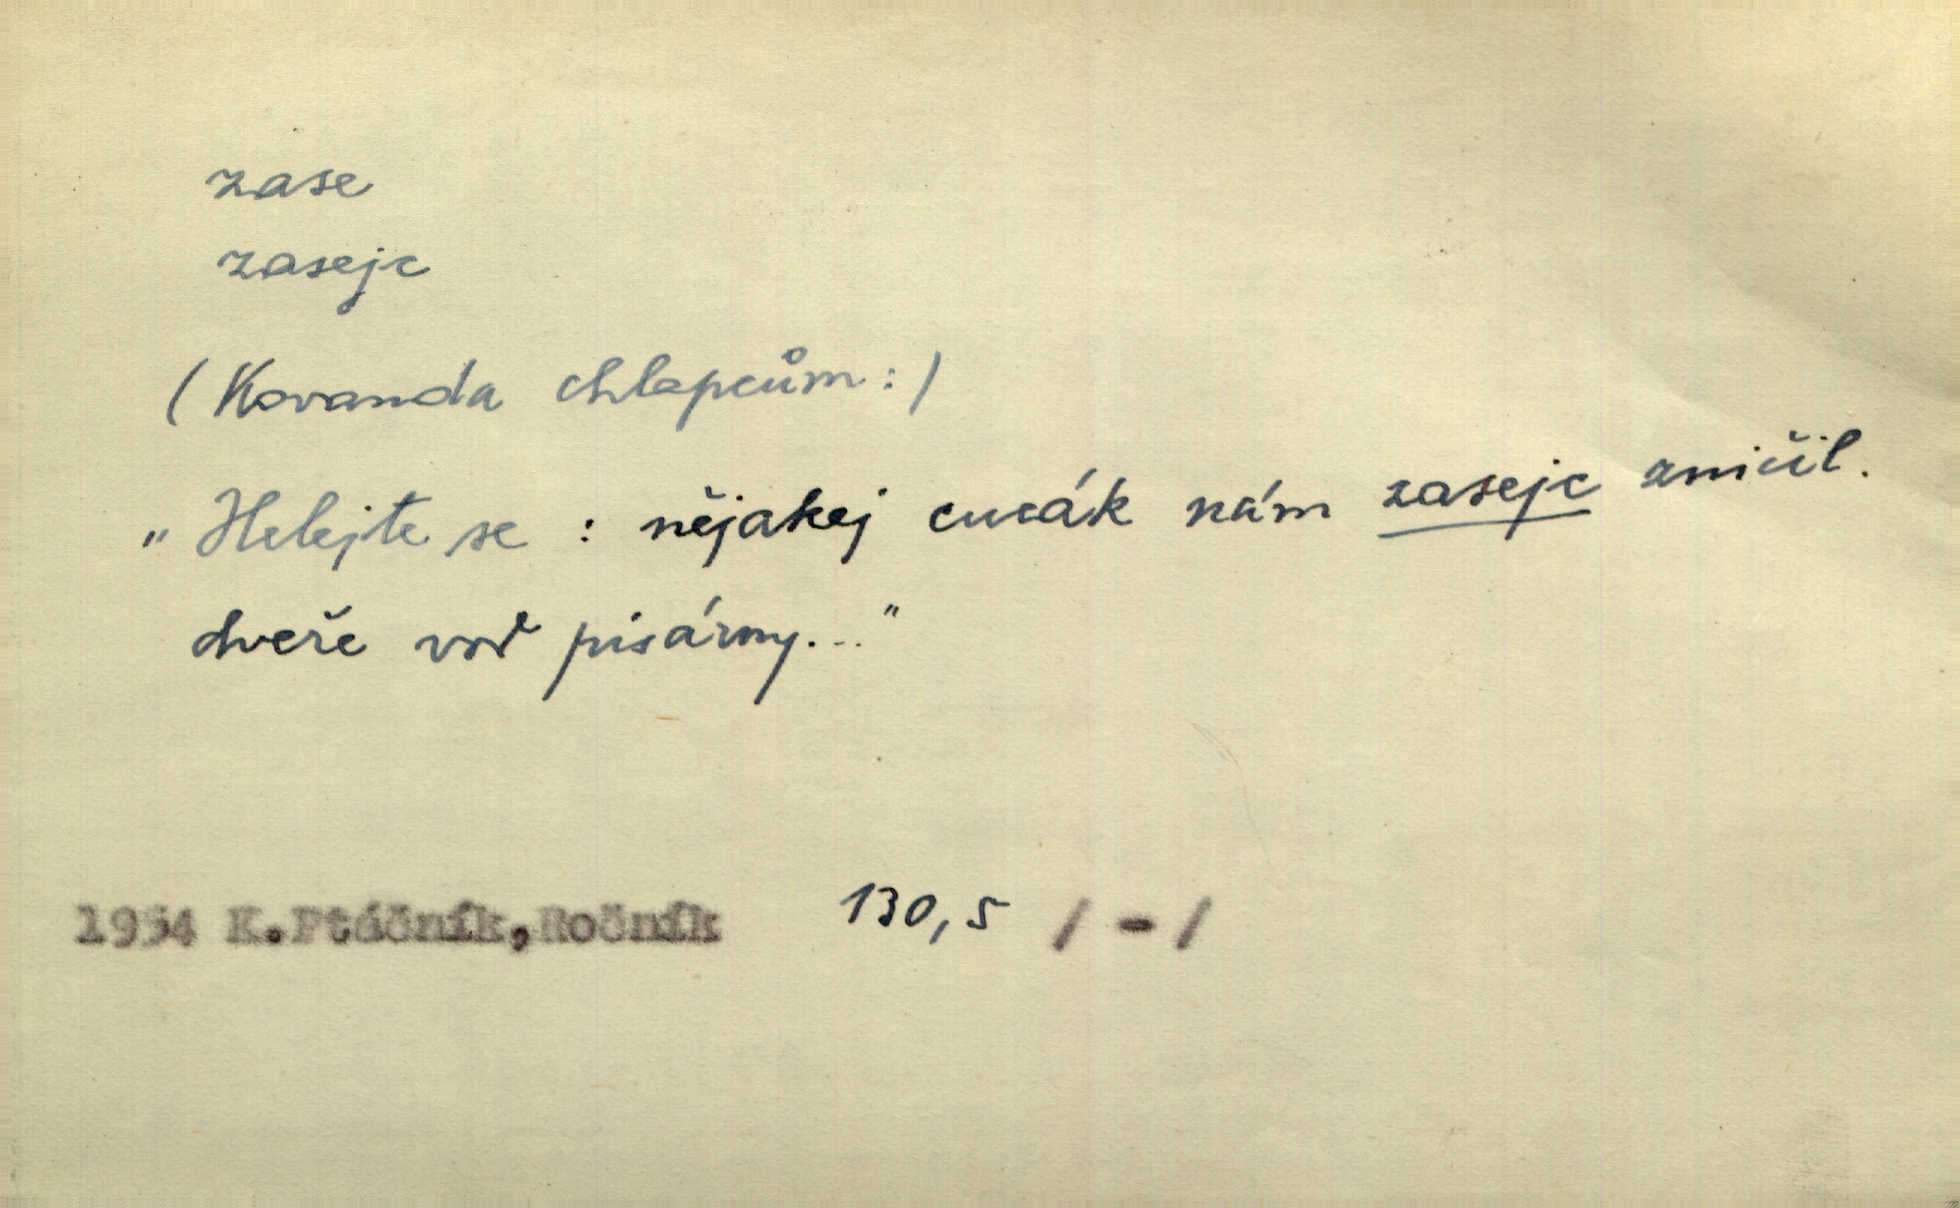 zase
zasejc
(Kovanda chlapcům:)
„Helejte se : nějakej cucák nám zasejc zničil.
dveře vod pisárny..."
1954 K.Ptáčník,Ročník 130,5 / - /